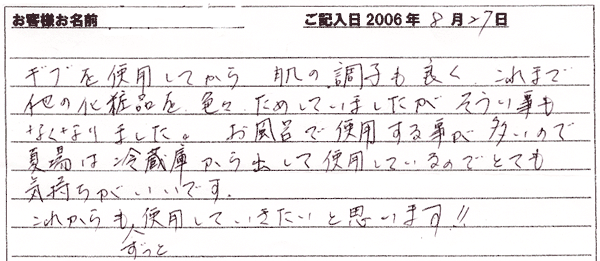 お客様お名前 ご記入日 2006 年 8 月 27 日
ギブを使用してから 肌の調子も良く これまで
他の化粧品を 色々 ためしていましたが そういう事も
なくなりました。 お風呂で使用する事が多いので
夏場は冷蔵庫から出して使用しているのでとても
気持ちがいいです.
これからも使用していきたいと思います!!
ずっと